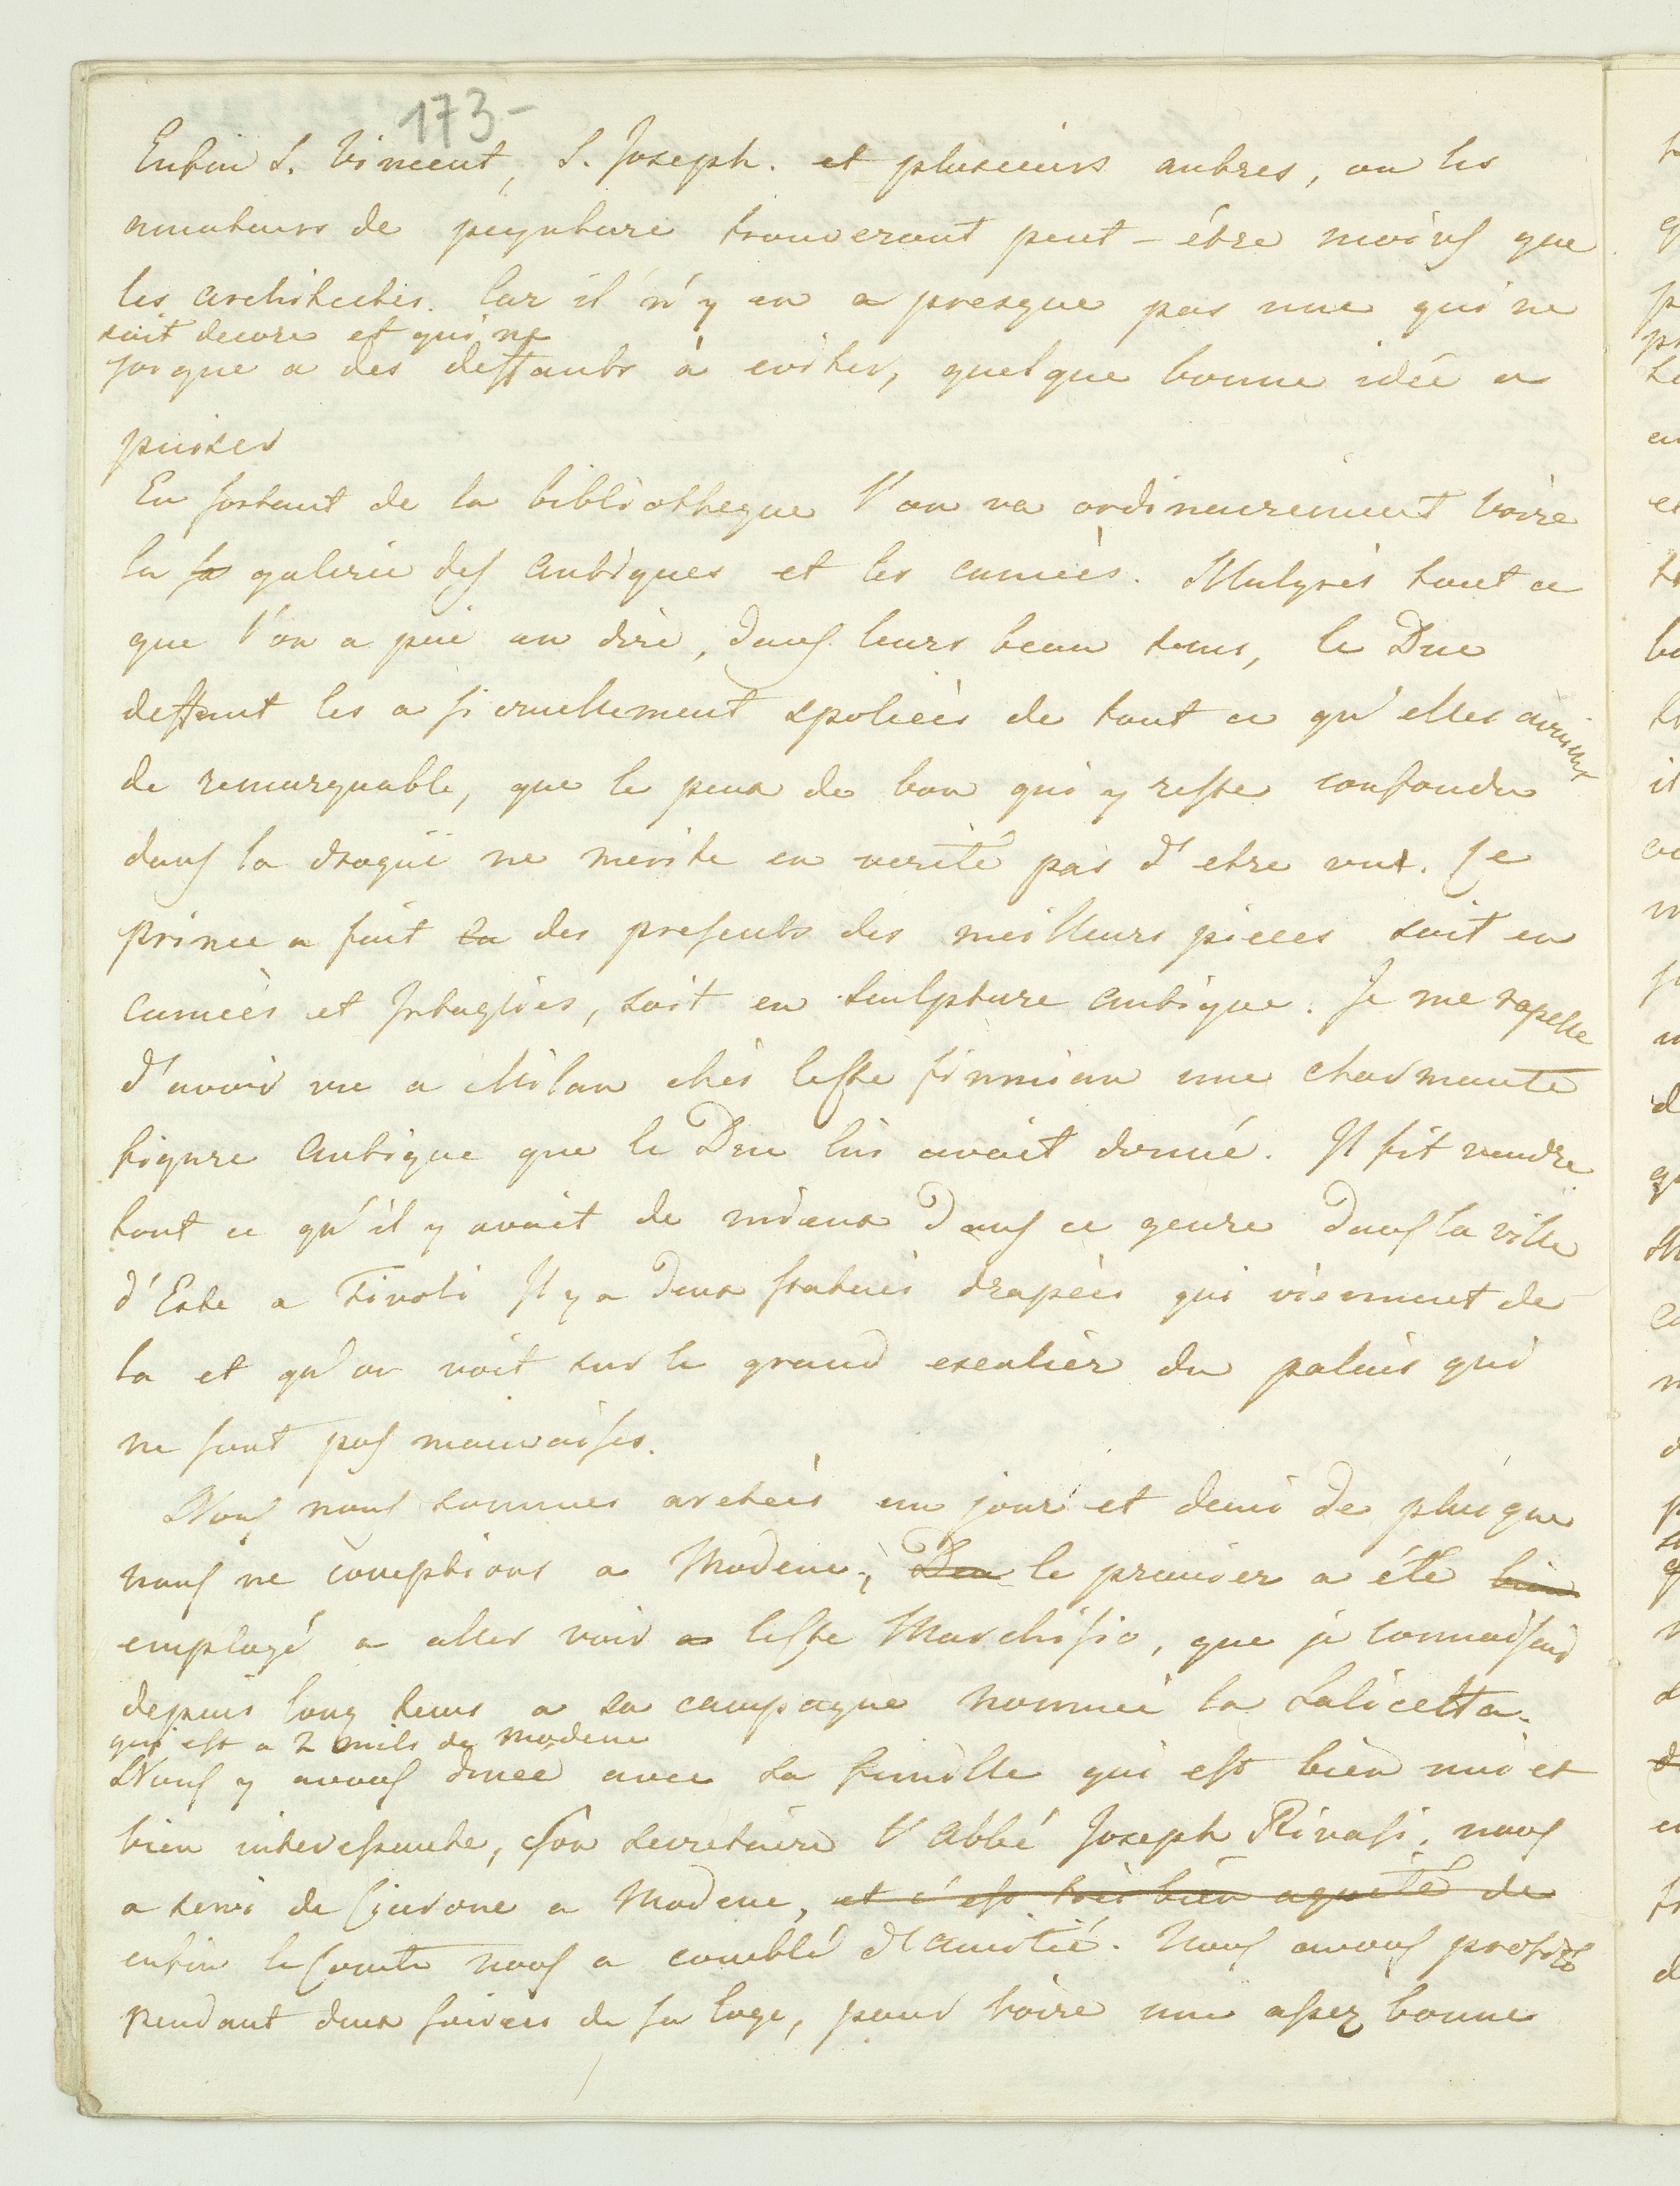 173-
Enfin S. Vincent, S. Joseph. et plusieurs autres, ou les
amateurs de peynture trouveront peut-étre moins que
les architectes. Car il n'y en a presque pas une qui ne
soit decore et qui ne
joigne a des deffauts à eviter, quelque bonne idée a
puiser
En sortant de la bibliotheque l'on va ordinairement voire
la sa galerie des antiques et les cameès. Malgrés tout ce
que l'on a puè en dire, dans leurs beau tems, le Duc
deffunt les a si cruellement spolieès de tout ce qu'elles avaient
de remarquable, que le peux de bon qui y reste confondu
dans la droguë ne merite en verité pas d'etre vut. Ce
prince a fait sa des presents des meilleurs pieces soit en
cameès et Intaglies, soit en sculpture antique. Je me rapelle
d'avoir vu a Milan chès le Cte firmian une charmante
figure antique que le Duc lui avait donné. Il fit vendre
tout ce qu'il y avait de mieux dans ce genre dans la ville
d'Este a Tivoli Il y a deux statues drapeès qui viennent de
la et qu'on voit sur le grand escalier du palais qui
ne sont pas mauvaises.
Nous nous sommes aretteès un jour et demi de plus que
nous ne comptions a Modene; Den le premier a été bien
employé a aller voir a le Cte Marchisio, que je connaissais
depuis long tems a sa campagne nommeè la Salicetta.
qui est a 2 mils de modene
Nous y avons dinee avec sa famille qui est bien uni et
bien interessante, son secretaire l'Abbé Joseph Rivasi. nous
a servi de Cicerone a Modene, et c'est très bien aquité de
enfin le Comte nous a comblé d'amitié. Nous avons profité
pendant deux soirees de sa loge, pour voire une assez bonne